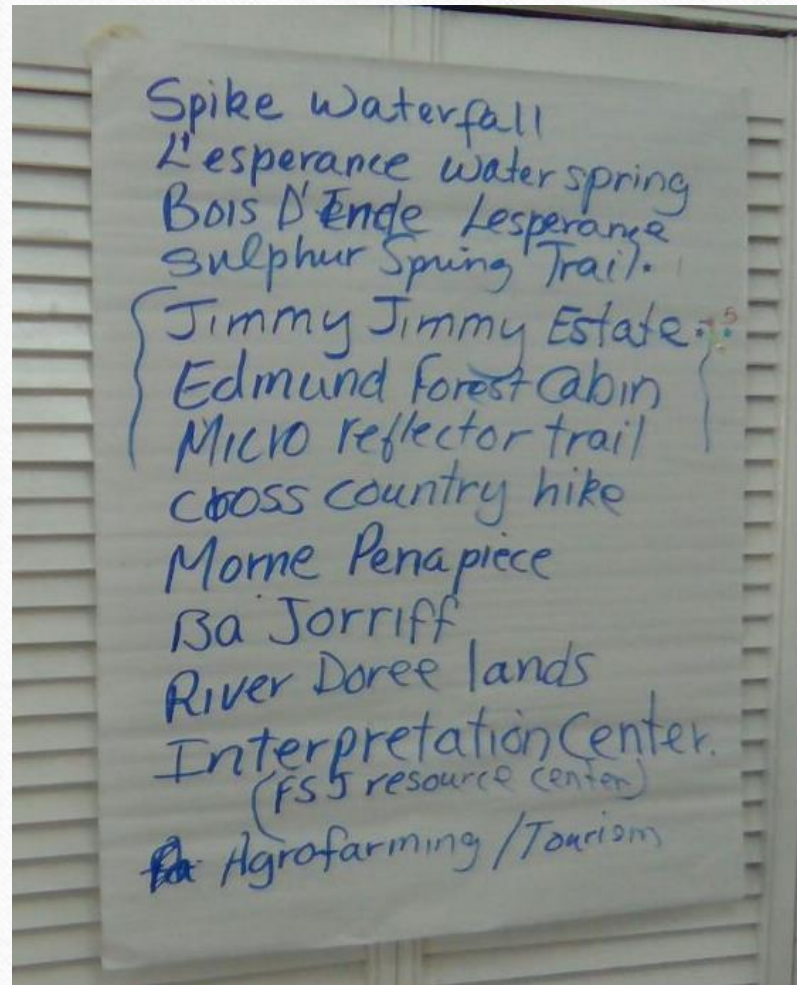 Spike Waterfall
L'esperance water spring
Bois D'Ende Lesperance
Sulphur Spring Trail.
Jimmy Jimmy Estate 5
Edmund Forest Cabin
Micro reflector trail
cross country hike
Morne Penapiece
Ba Jorriff
River Doree lands
Interpretation Center.
(FSJ resource center)
Agrofarming / Tourism